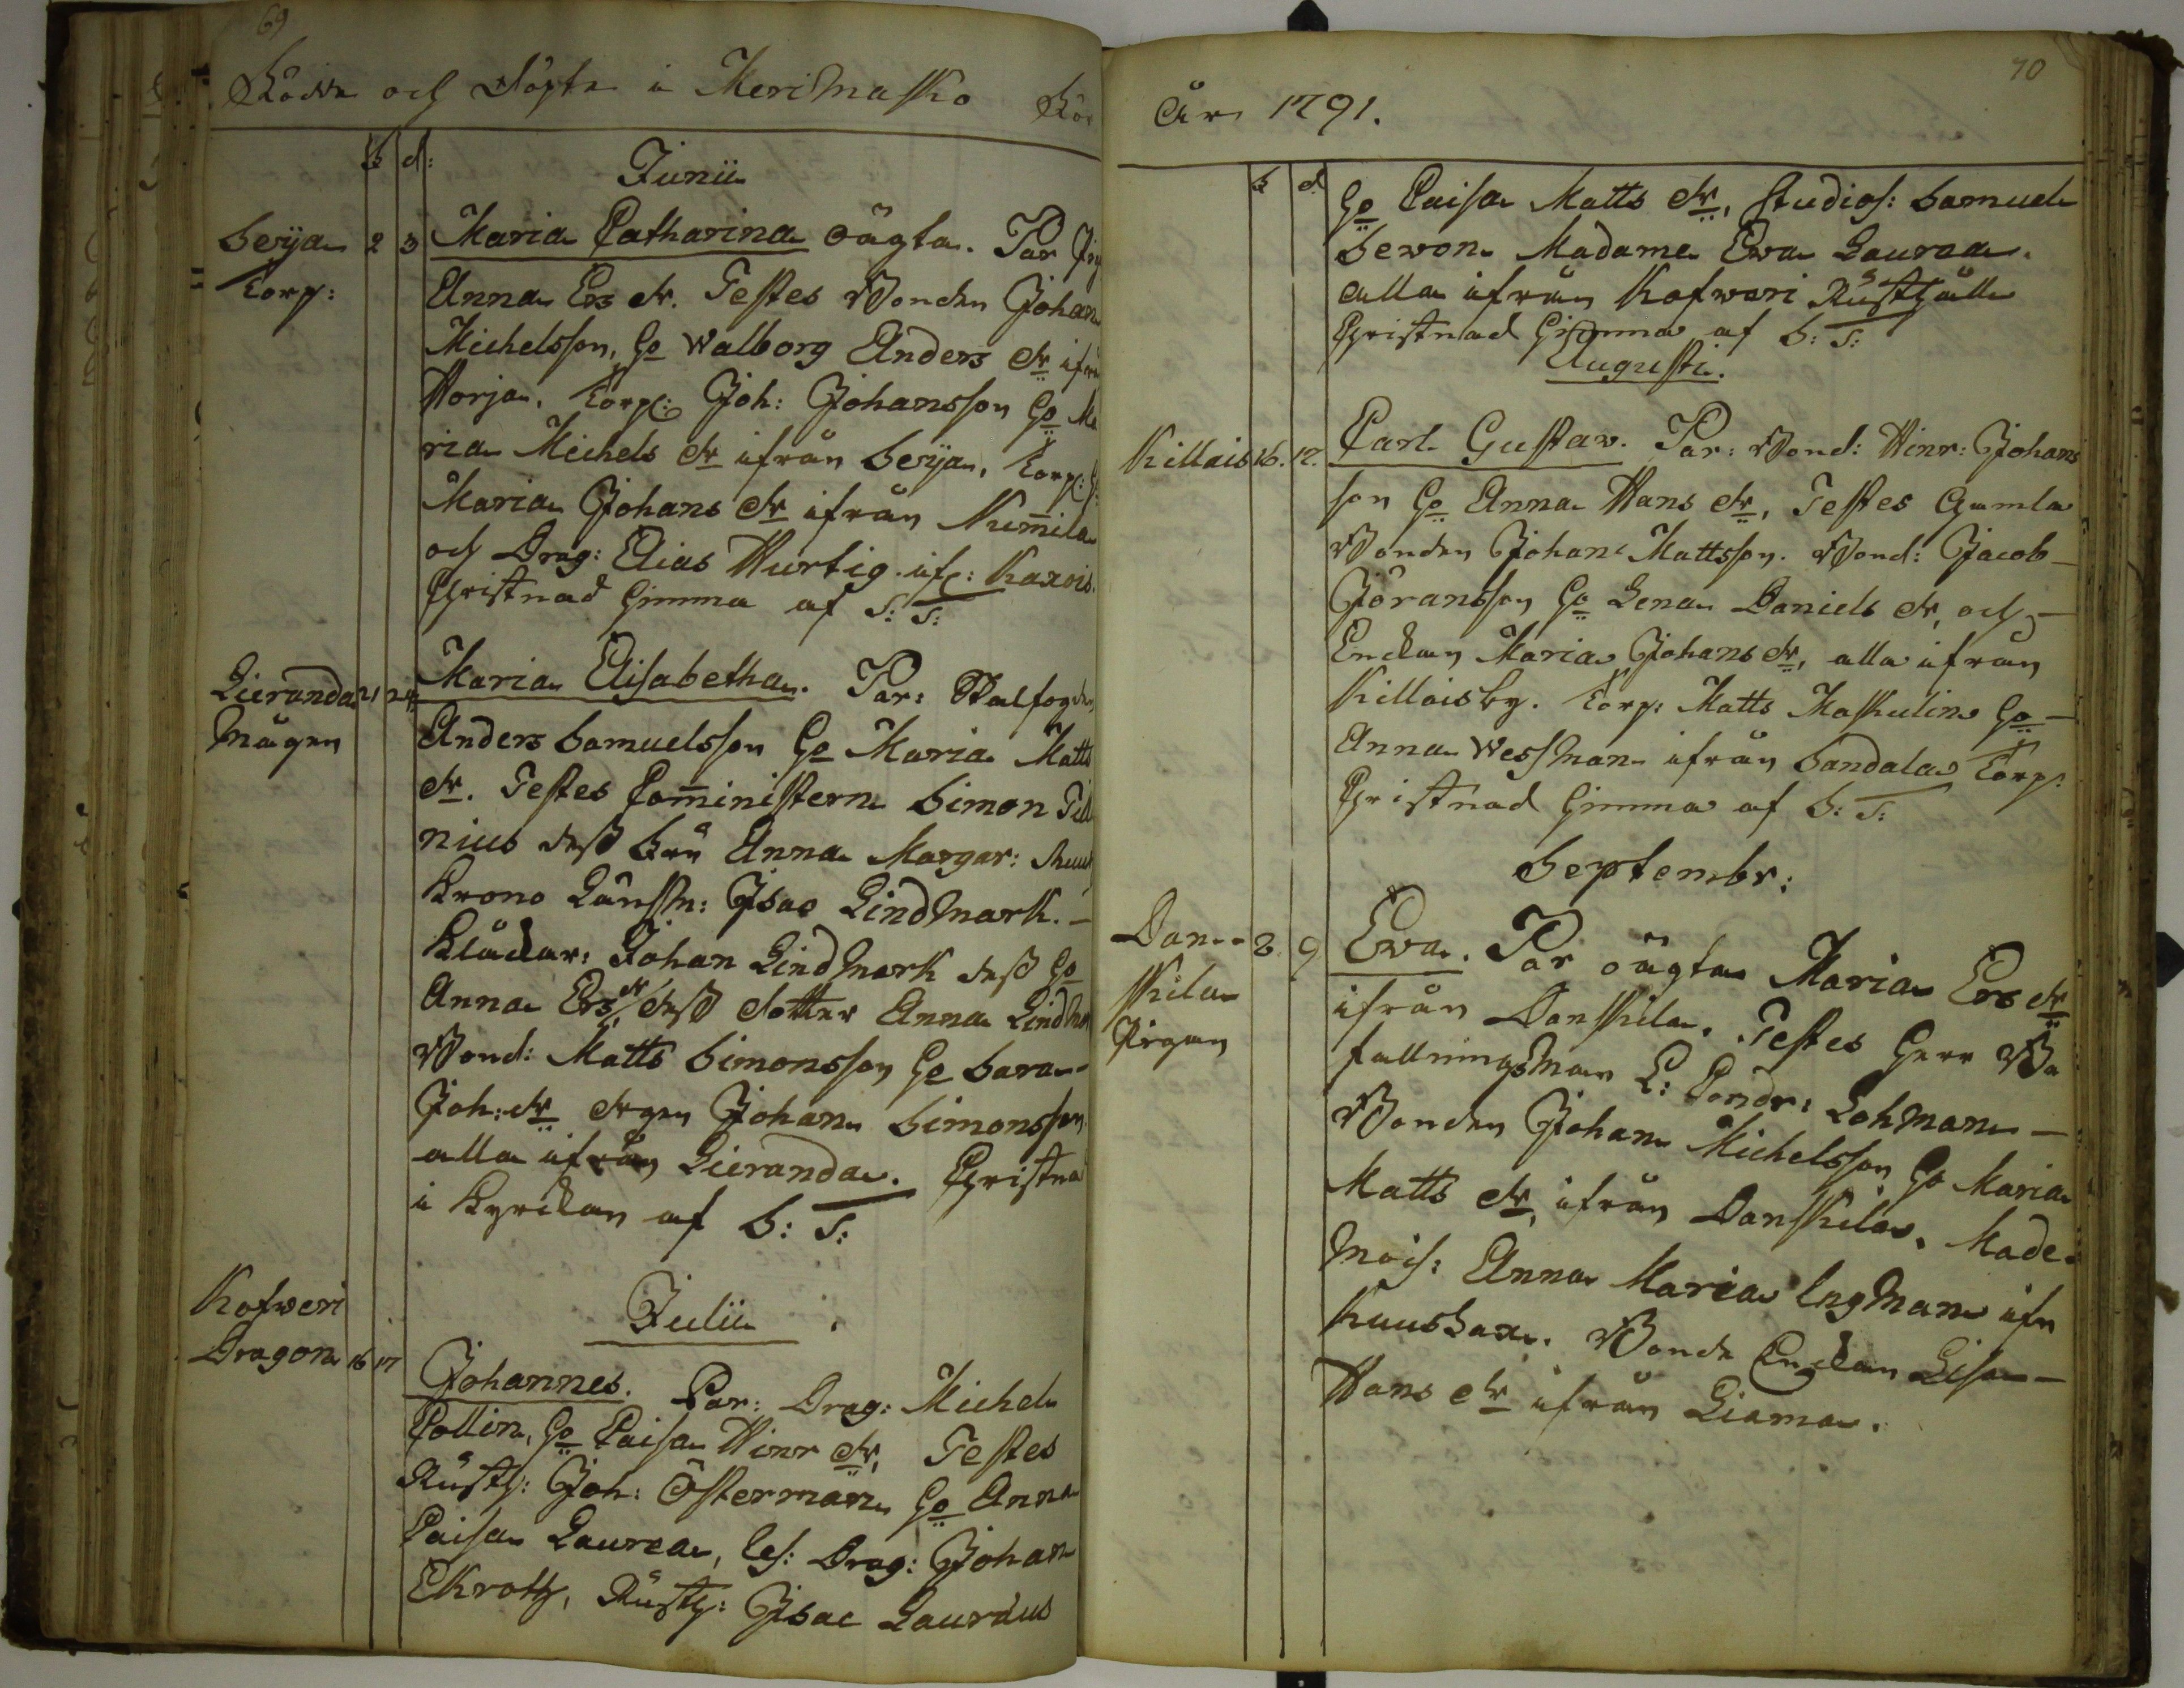 69
Födde och döpte i Merimasko För
f d:
Junii
Seija 2 3 Maria Catharina oägta. Par Pig
Torp: Anna Ers dr. Testes Bonden Johan
Michelsson, Ho Walborg Anders dr ifrån
Horja. Torp: Joh: Johansson Ho Ma
ria Michels dr ifrån Seija, Torp: H:
Maria Johans dr ifrån Num̄ila
och Drag: Elias Hurtig. ifr: Kaxois.
Christnad hemma af S: T:
Lieranda 21 24 Maria Elisabetha. Par: Stalfogden
Mågen Anders Samuelsson Ho Maria Matts
dr. Testes Com̄inistern Simon Tell
nius dess Fru Anna Margar:
Krono Länsm: Isac Lindmark. –
Klåckar: Johan Lindmark dess Ho
Anna Ers dr, dess dotter Anna Lindm
Bond: Matts Simonsson Ho Sara
Joh: dr drgen Johan Simonsson
alla ifrån Lieranda. Christna
i Kyrckan af S: T:
Julii
Kofweri
Dragon 16 17 Johannes. Par: Drag: Michel
Collin, Ho Caisa Hinr dr, Testes
Rusth: Joh: Österman Ho Anna
Caisa Laurea, Drag: Johan
Ekroth, Rusth: Isac Lauræus
70
År 1791.
f d
Ho Caisa Matts dr, Studios: Samuel
Sewon Madame Ewa Lauræa.
alla ifrån Kofweri Rusthåll
Christnad hemma af S: T:
Augusti.
Killais 16. 17. Carl Gustav. Par: Bond: Hinr: Johans
son Ho Anna Hans dr, Testes Gamla
Bonden Johan Mattsson. Bond: Jacob
Jöransson Ho Lena Daniels dr, och –
Enckan Maria Johans dr, alla ifrån
Killaisby. Torp: Matts Maskulin Ho –
Anna Wessman ifrån Sandala Torp.
Christnad hemma af S: T:
Septembr:
Dan= 8. 9 Ewa. Par oägta Maria Ers dr
skila ifrån Danskila. Testes Herr Be
Pigan fallningsman L: Lohman –
Bonden Johan Michelsson Ho Maria
Matts dr, ifrån Danskila. Made=
mois: Anna Maria Ingman ifn
Kuuskax. Bonde Enckan Lisa –
Hans dr ifrån Liama.